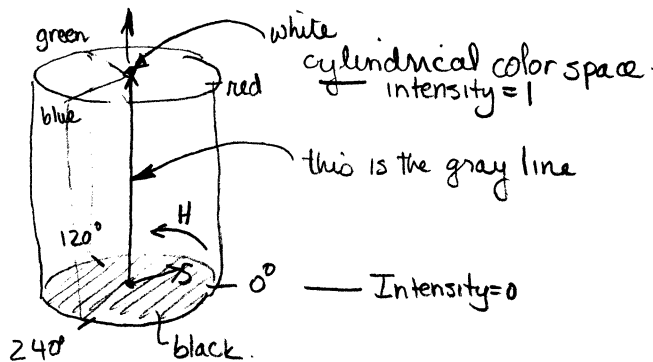 green
white
cylindrical color space.
red
intensity=1
blue
this is the gray line
H
120°
S
0°
Intensity=0
240°
black.